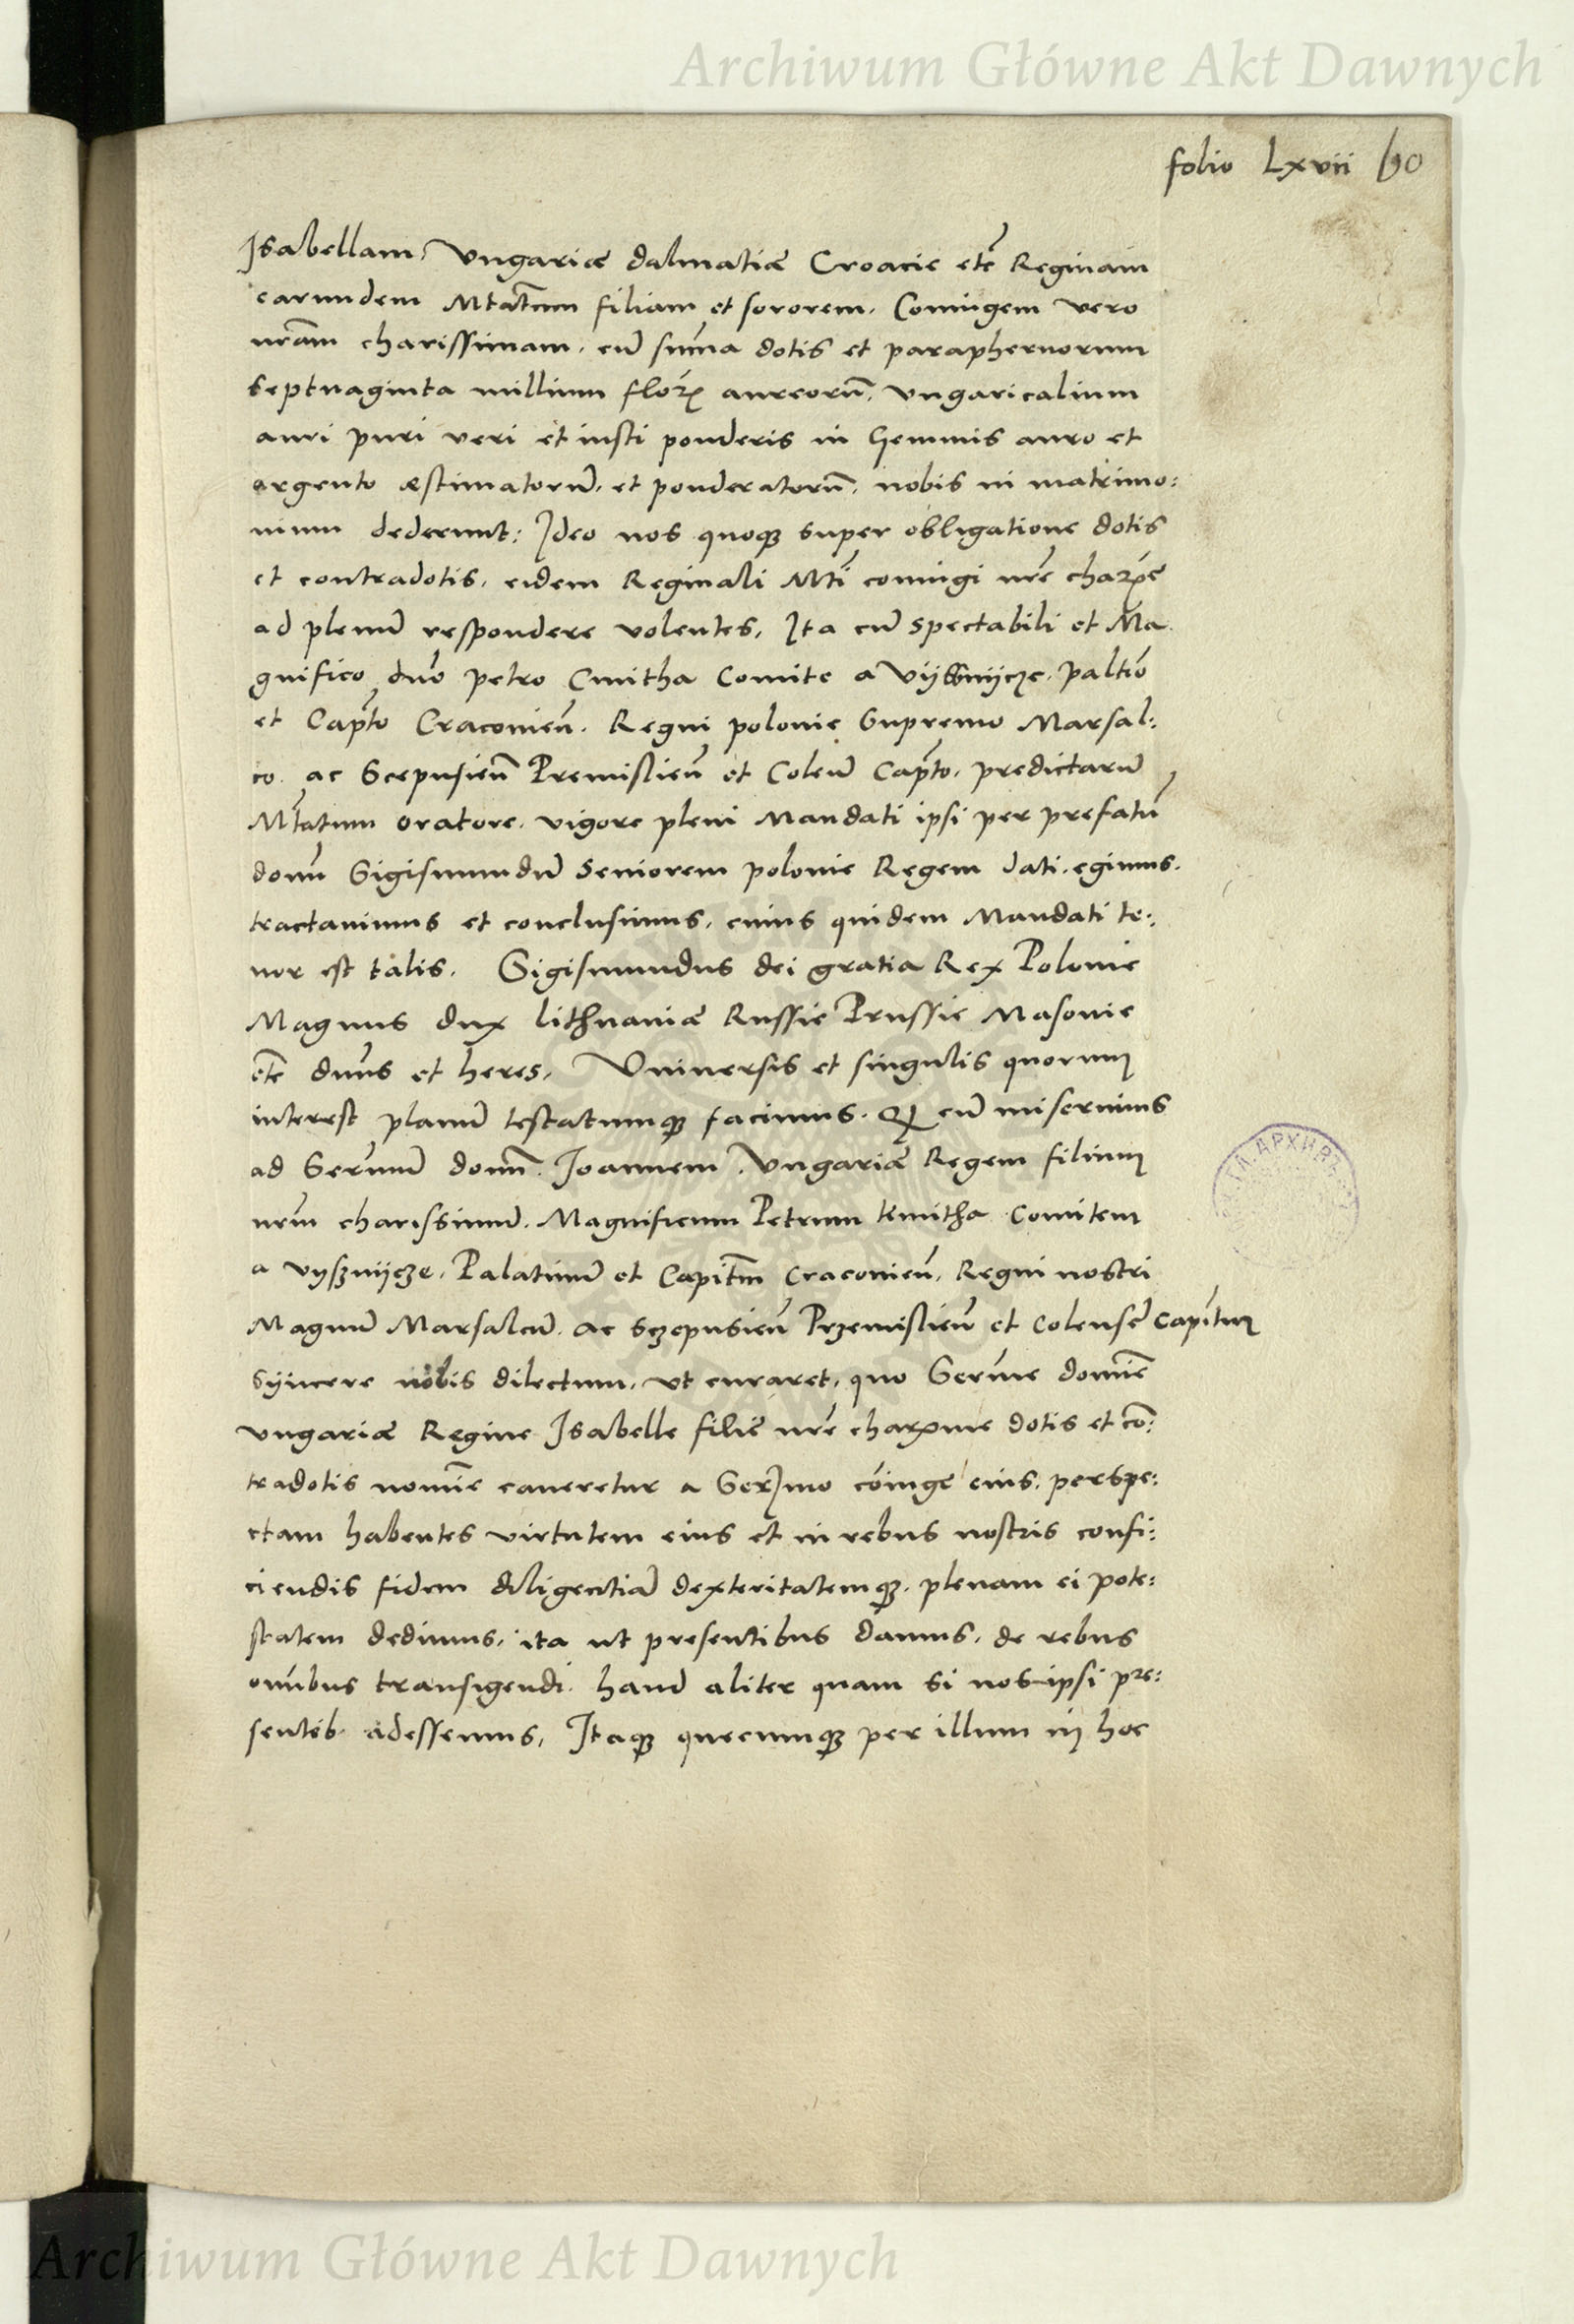 Archiwum Główne Akt Dawnych
folio Lxvii 60
Isabellam, Vngariæ dalmatiæ Croacie etc̃ Reginam
earundem Mtatum filiam et sororem. Coniugem vero
nr̃am charissimam. cũ sum̃a dotis et paraphernorum
septuaginta millium flor̃ aureorũ. vngaricalium
auri puri veri et iusti ponderis in Gemmis auro et
argento æstimatorũ. et ponderatorũ. nobis in matrimo:
nium dederunt: Ideo nos quoqꝫ super obligatione dotis
et contradotis. eidem Reginali Mti coniugi nr̃e char̃me
ad plenũ respondere volentes, Ita cũ spectabili et Ma
gnifico dño petro Cmitha Comite a Vijssnijcze. paltiõ
et Cap̃to Craconieñ. Regni polonie Supremo Marsal:
co. ac Scepusieñ Premislieñ et Coleñ Cap̃to. predictarũ
Mtatum oratore. vigore pleni Mandati ipsi per prefatũ
donũ Sigismundũ Seniorem polonie Regem dati. egimus.
tractauimus et conclusimus. cuius quidem Mandati te:
nor est talis. Sigismundus dei gratia Rex Polonie
Magnus dux lithuaniæ Russie Prussie Masouie
etc̃ dñus et heres, Vniuersis et singulis quorum
interest planũ testatumqꝫ facimus. Qd cũ miserimus
ad Serm̃ũ domñ. Joannem. Vngariæ Regem filium
nrm̃ charissimũ. Magnificum Petrum kmitha Comitem
a vyszniycze. Palatinũ et Capitm̃ Craconieñ. Regni nostri
Magnũ Marsalcũ. ac Sczepusieñ Przemislieñ et Colensẽ Capitũm
Syncere nobis dilectum. vt curaret, quo Serme domiñe
vngariæ Regine Isabelle filie nr̃e charme dotis et cõ:
tradotis nomiñe caueretur a Sermo cõiuge eius. perspe:
ctam habentes virtutem eius et in rebus nostris confi:
ciendis fidem diligentiã dexteritatemqꝫ. plenam ei pote:
statem dedimus, ita ut presentibus damus. de rebus
om̃ibus transigendi. haud aliter quam si nos ipsi pre:
sentib adessemus, Itaqꝫ quecumqꝫ per illum in hoc
Archiwum Główne Akt Dawnych